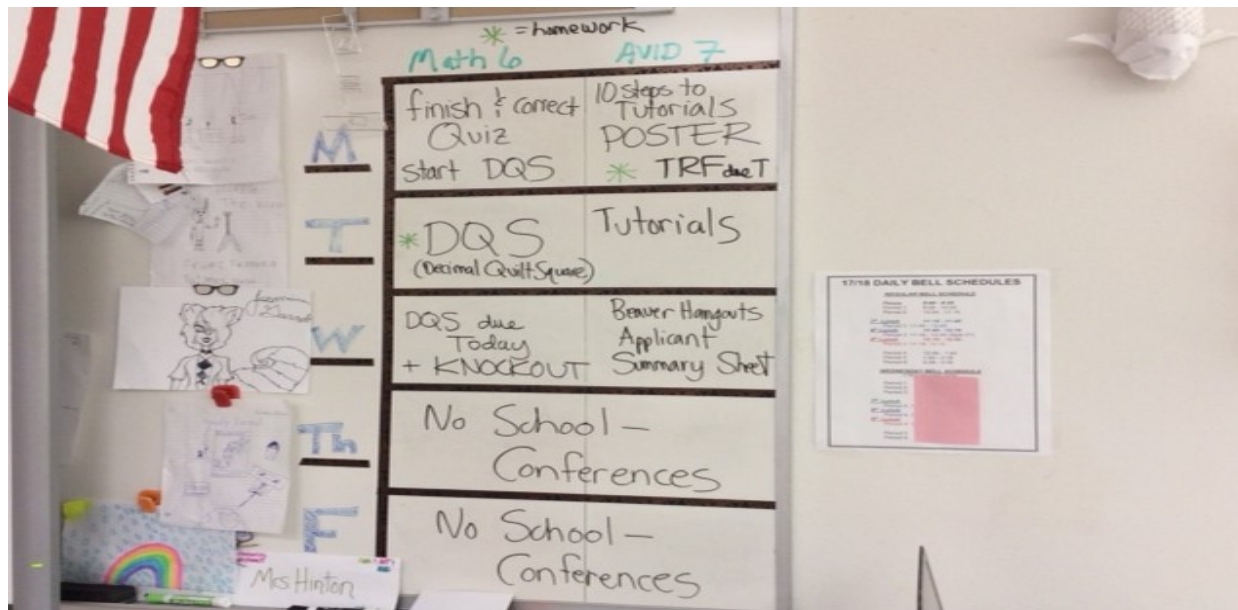 * = homework
Math 6
AVID 7
M
finish & correct
Quiz
start DQS
10 steps to
Tutorials
POSTER
* TRF due T
T
* DQS
(Decimal Quilt Square)
Tutorials
W
DQS due
Today
+ KNOCKOUT
Beaver Hangouts
Applicant
Summary Sheet
Th
No School –
Conferences
F
No School –
Conferences
Mrs Hinton
17/18 DAILY BELL SCHEDULES
REGULAR BELL SCHEDULE
WEDNESDAY BELL SCHEDULE